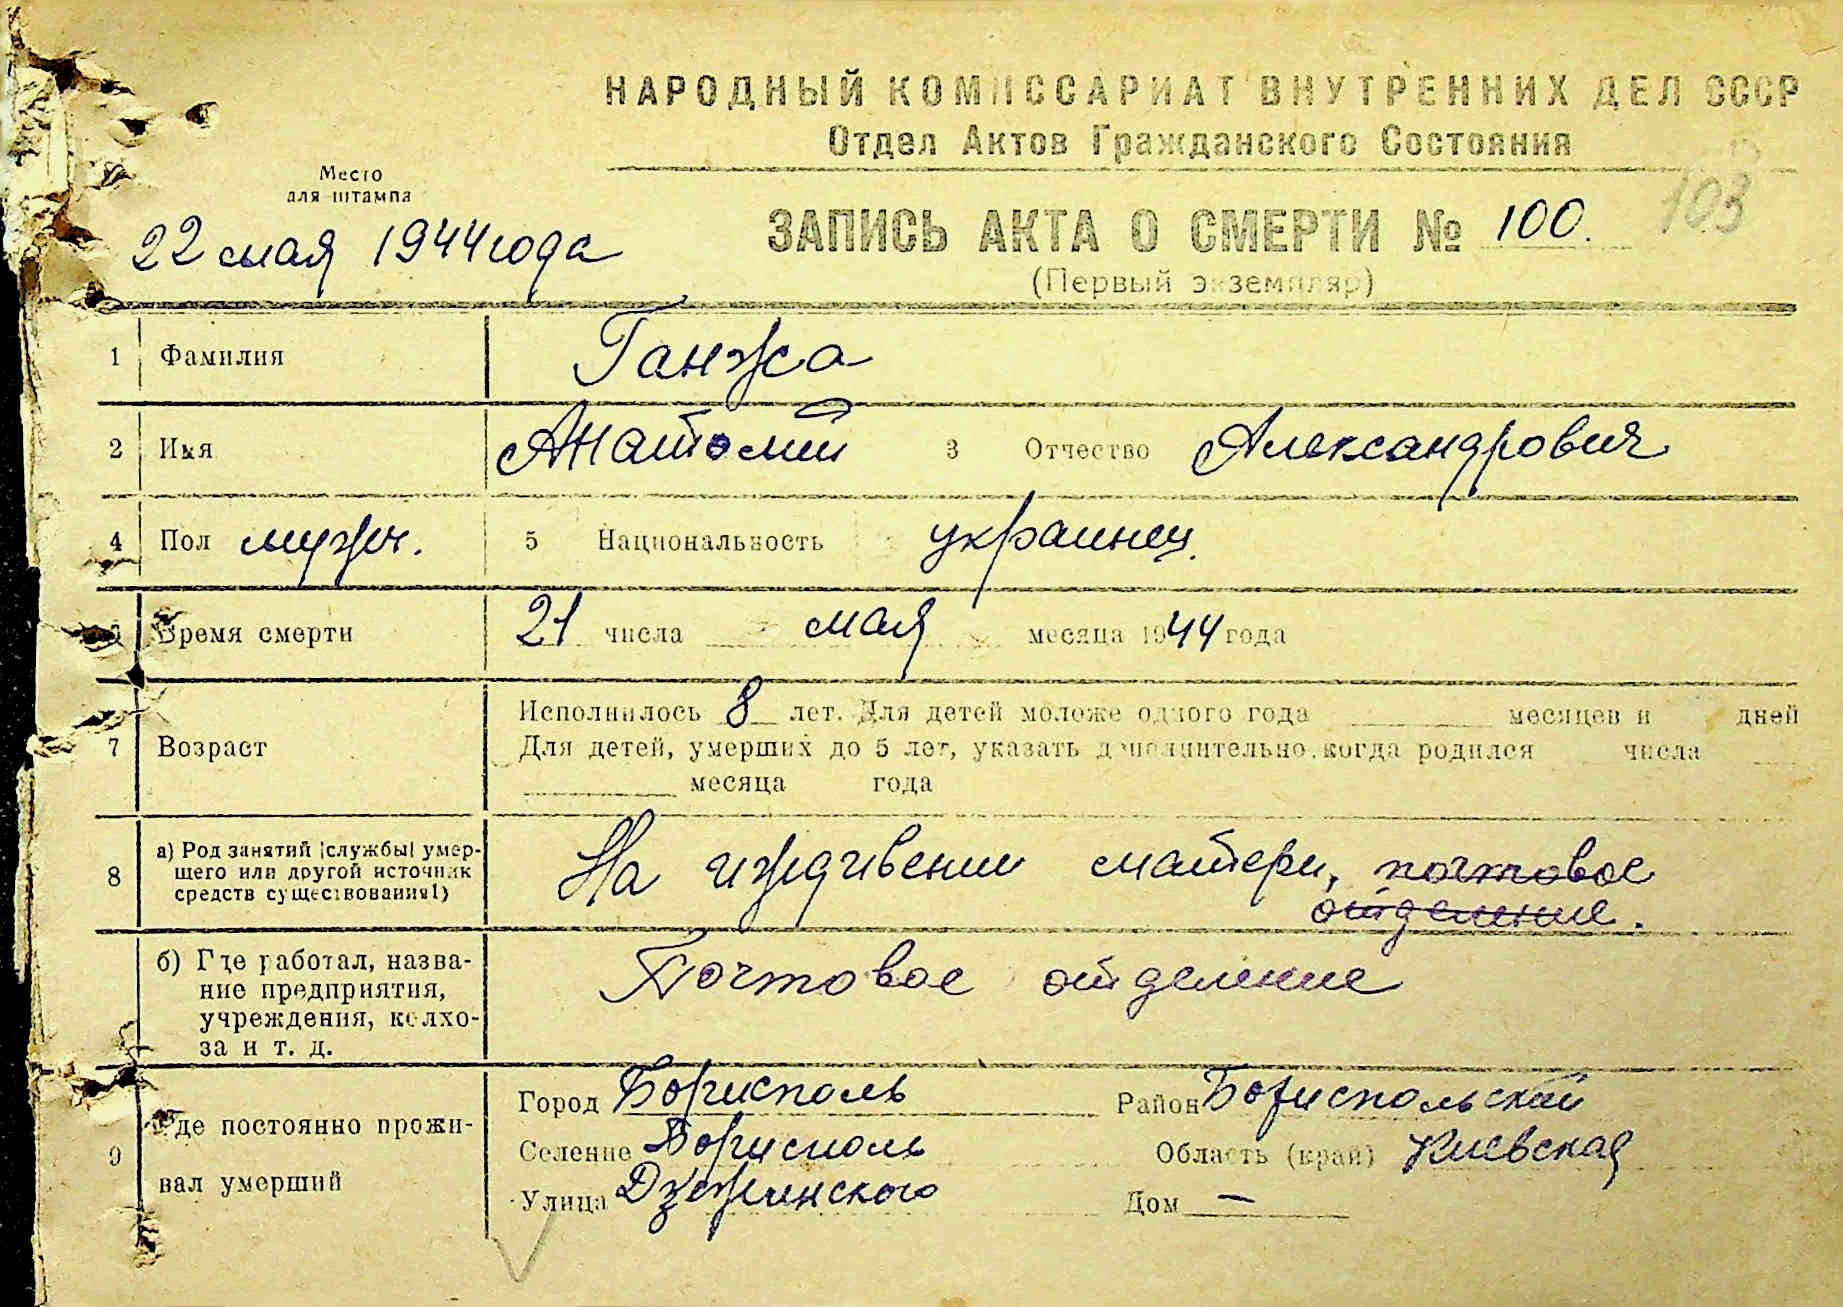 НАРОДНЫЙ КОМИССАРИАТ ВНУТРЕННИХ ДЕЛ СССР
Отдел Актов Гражданского Состояния
Место
для штампа
22 мая 1944 года
ЗАПИСЬ АКТА О СМЕРТИ № 100. 103
(Первый экземпляр)
1 Фамилия Ганжа
2 Имя Анатолий 3 Отчество Александрович
4 Пол мужч. 5 Национальность украинец.
6 Время смерти 21 числа мая месяца 1944 года
7 Возраст
Исполнилось 8 лет. Для детей моложе одного года месяцев и дней
Для детей, умерших до 5 лет, указать дополнительно, когда родился числа
месяца года
8 а) Род занятий (службы) умер-
шего или другой источник
средств существования1)
На иждивении матери, почтовое
отделение.
б) Где работал, назва-
ние предприятия,
учреждения, колхо-
за и т. д.
Почтовое отделение
9 Где постоянно прожи-
вал умерший
Город Борисполь Район Бориспольский
Селение Борисполь Область (край) Киевская
Улица Дзержинского Дом —